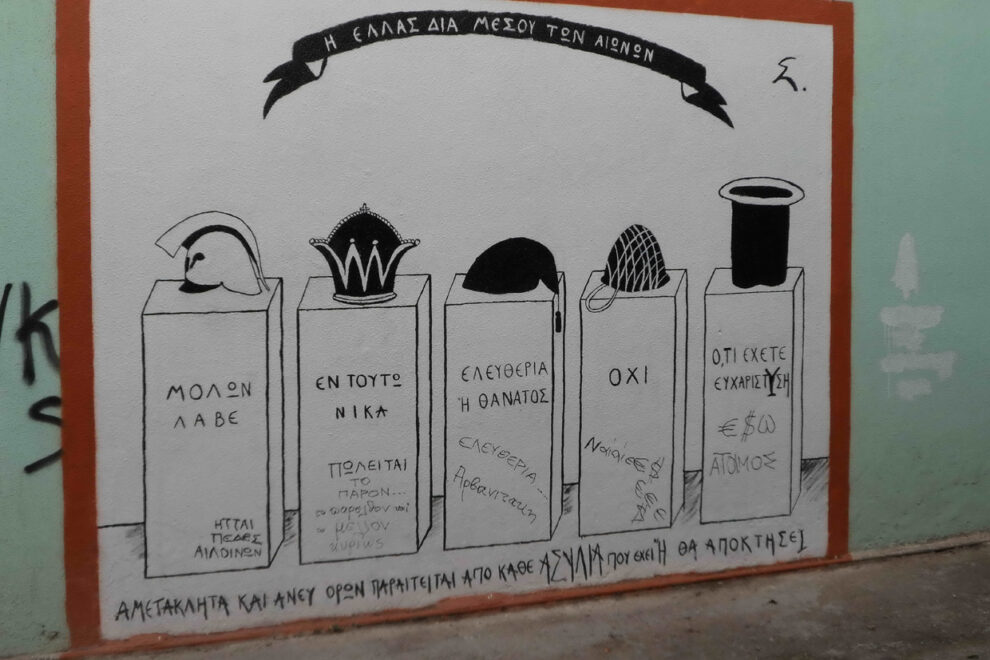 Η ΕΛΛΑΣ ΔΙΑ ΜΕΣΟΥ ΤΩΝ ΑΙΩΝΩΝ
Σ.
ΜΟΛΩΝ
ΛΑΒΕ
ΗΤΤΑΙ
ΕΝ ΤΟΥΤΩ
ΝΙΚΑ
ΠΩΛΕΙΤΑΙ
ΤΟ
ΠΑΡΟΝ...
το παρελθον και
ο μέλλον
κυρίως
ΕΛΕΥΘΕΡΙΑ
Ή ΘΑΝΑΤΟΣ
ΕΛΕΥΘΕΡΙΑ...
Αρβανιτακη
ΟΧΙ
Ο,ΤΙ ΕΧΕΤΕ
ΕΥΧΑΡΙΣΤΥΣΗ
€$ω
ΑΤΟΙΜΟΣ
ΑΜΕΤΑΚΛΗΤΑ ΚΑΙ ΑΝΕΥ ΟΡΩΝ ΠΑΡΑΙΤΕΙΤΑΙ ΑΠΟ ΚΑΘΕ ΑΣΥΛΙΑ ΠΟΥ ΕΧΕΙ Ή ΘΑ ΑΠΟΚΤΗΣΕΙ